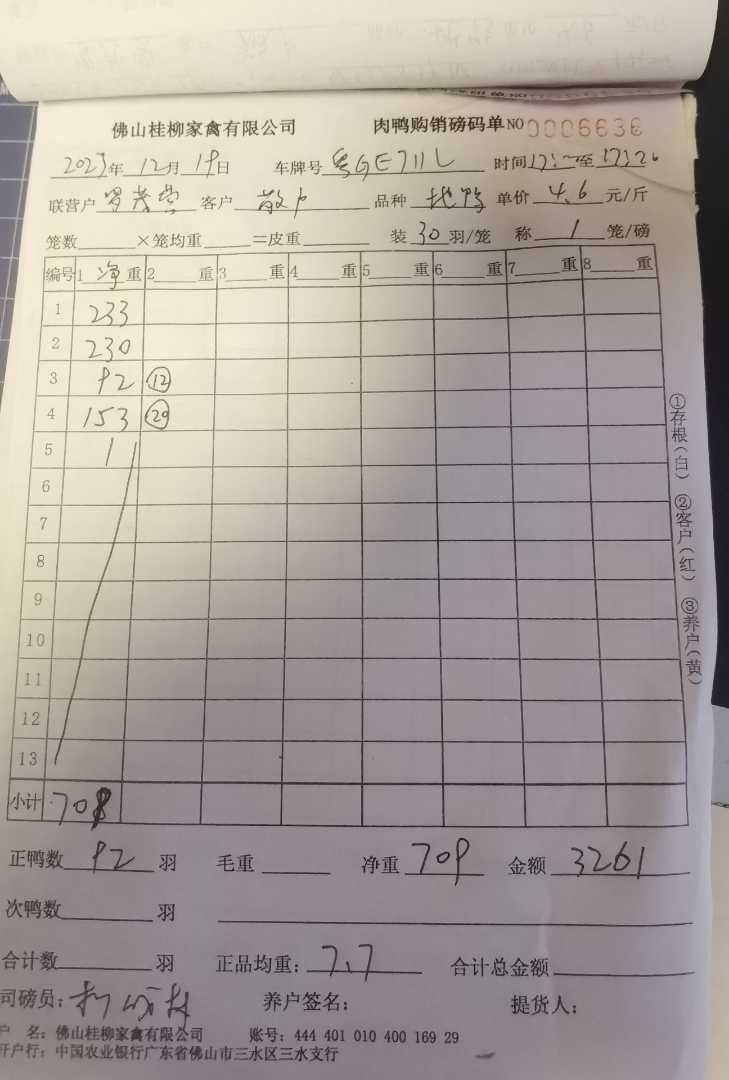 佛山桂柳家禽有限公司 肉鸭购销磅码单 NO 0006636
2023年 12月 19日 车牌号 粤GE711L 时间 至
联营户 客户 散户 品种 地鸭 单价 4.6 元/斤
笼数 ×笼均重 =皮重 装 30 羽/笼 称 1 笼/磅
编号 1 净 重 2 重 3 重 4 重 5 重 6 重 7 重 8 重
1 233
2 230
3 92 12
4 153 20
5 1
6
7
8
9
10
11
12
13
小计 708
正鸭数 92 羽 毛重 净重 709 金额 3261
次鸭数 羽
合计数 羽 正品均重: 7.7 合计总金额
司磅员: 养户签名: 提货人:
户 名: 佛山桂柳家禽有限公司 账号: 444 401 010 400 169 29
开户行: 中国农业银行广东省佛山市三水区三水支行
①存根(白) ②客户(红) ③养户(黄)